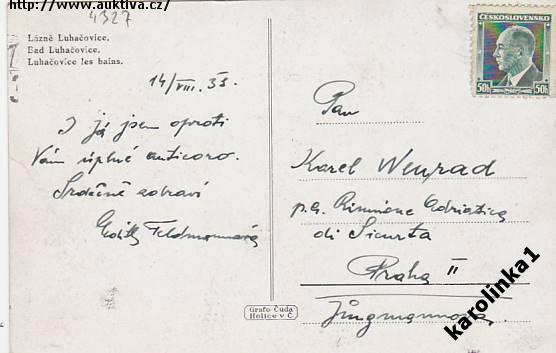 http://www.auktiva.cz/
4327
Lázně Luhačovice.
Bad Luhačovice.
Luhačovice les bains.
14/VIII. 33.
I já jsem oproti
Vám úplné anticoro.
Srdečně zdraví
Edith Feldmannová
ČESKOSLOVENSKO
50h 50h
Pan
Karel Neurad
p.a. Riunione Adriatica
di Sicurta
Praha II
Jungmannova
Grafo Čuda
Holice v Č.
karolinka1